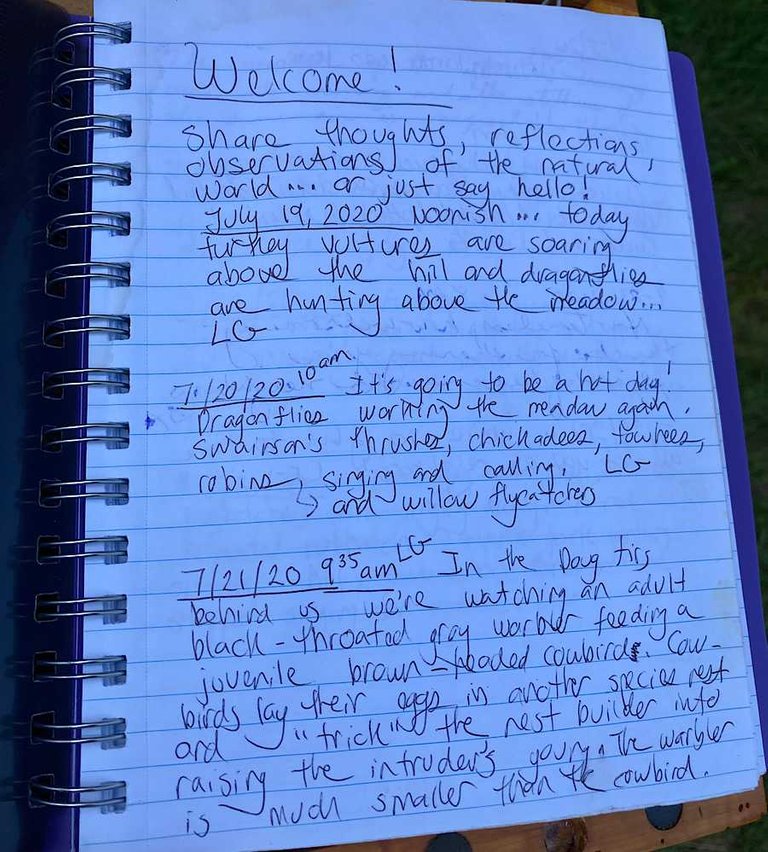 Welcome!
Share thoughts, reflections,
observations of the natural
world... or just say hello!
July 19, 2020 Noonish... today
turkey vultures are soaring
above the hill and dragonflies
are hunting above the meadow...
LG
7/20/20 10am It's going to be a hot day!
Dragonflies working the meadow again.
Swainson's thrushes, chickadees, towhees,
robins, singing and calling. LG
↳ and willow flycatchers
7/21/20 9 35 am LG In the Doug firs
behind us we're watching an adult
black-throated gray warbler feeding a
juvenile brown-headed cowbird. Cow-
birds lay their eggs in another species nest
and "trick" the nest builder into
raising the intruder's young. The warbler
is much smaller than the cowbird.